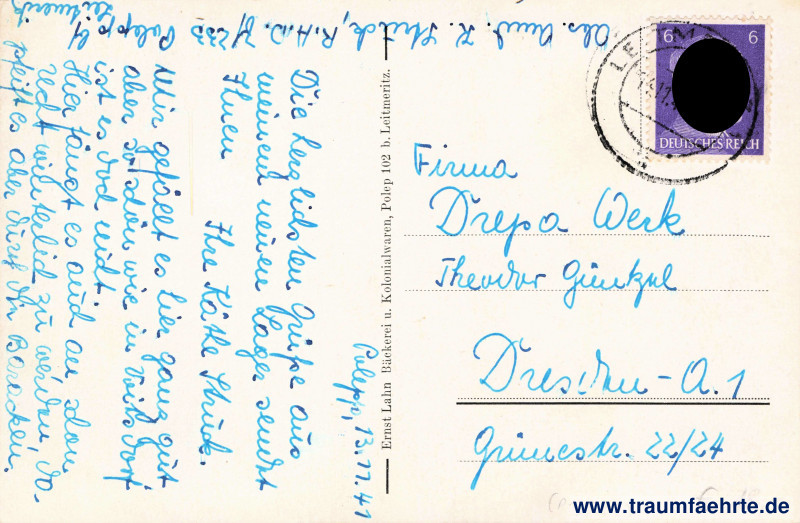 Abs. Amd. K. Struck, R.A.D. 7/233
Polepp b/
Leitmeritz
Polepp, 13.11.41
Die herzlichsten Grüße aus
meinem neuen Lager sendt
Ihnen
Ihre Käthe Struck.
Mir gefällt es hier ganz gut
aber so schön wie in Voitsdorf
ist es doch nicht.
Hier fängt es auch an schon
recht winterlich zu werden. Da-
pfeift es aber durch die Baracken.
Ernst Lahn Bäckerei u. Kolonialwaren, Polep 102 b. Leitmeritz.
6 6
DEUTSCHES REICH
Firma
Drepa Werk
Theodor Günkel
Dresden-A. 1
Grunestr. 22/24
www.traumfaehrte.de